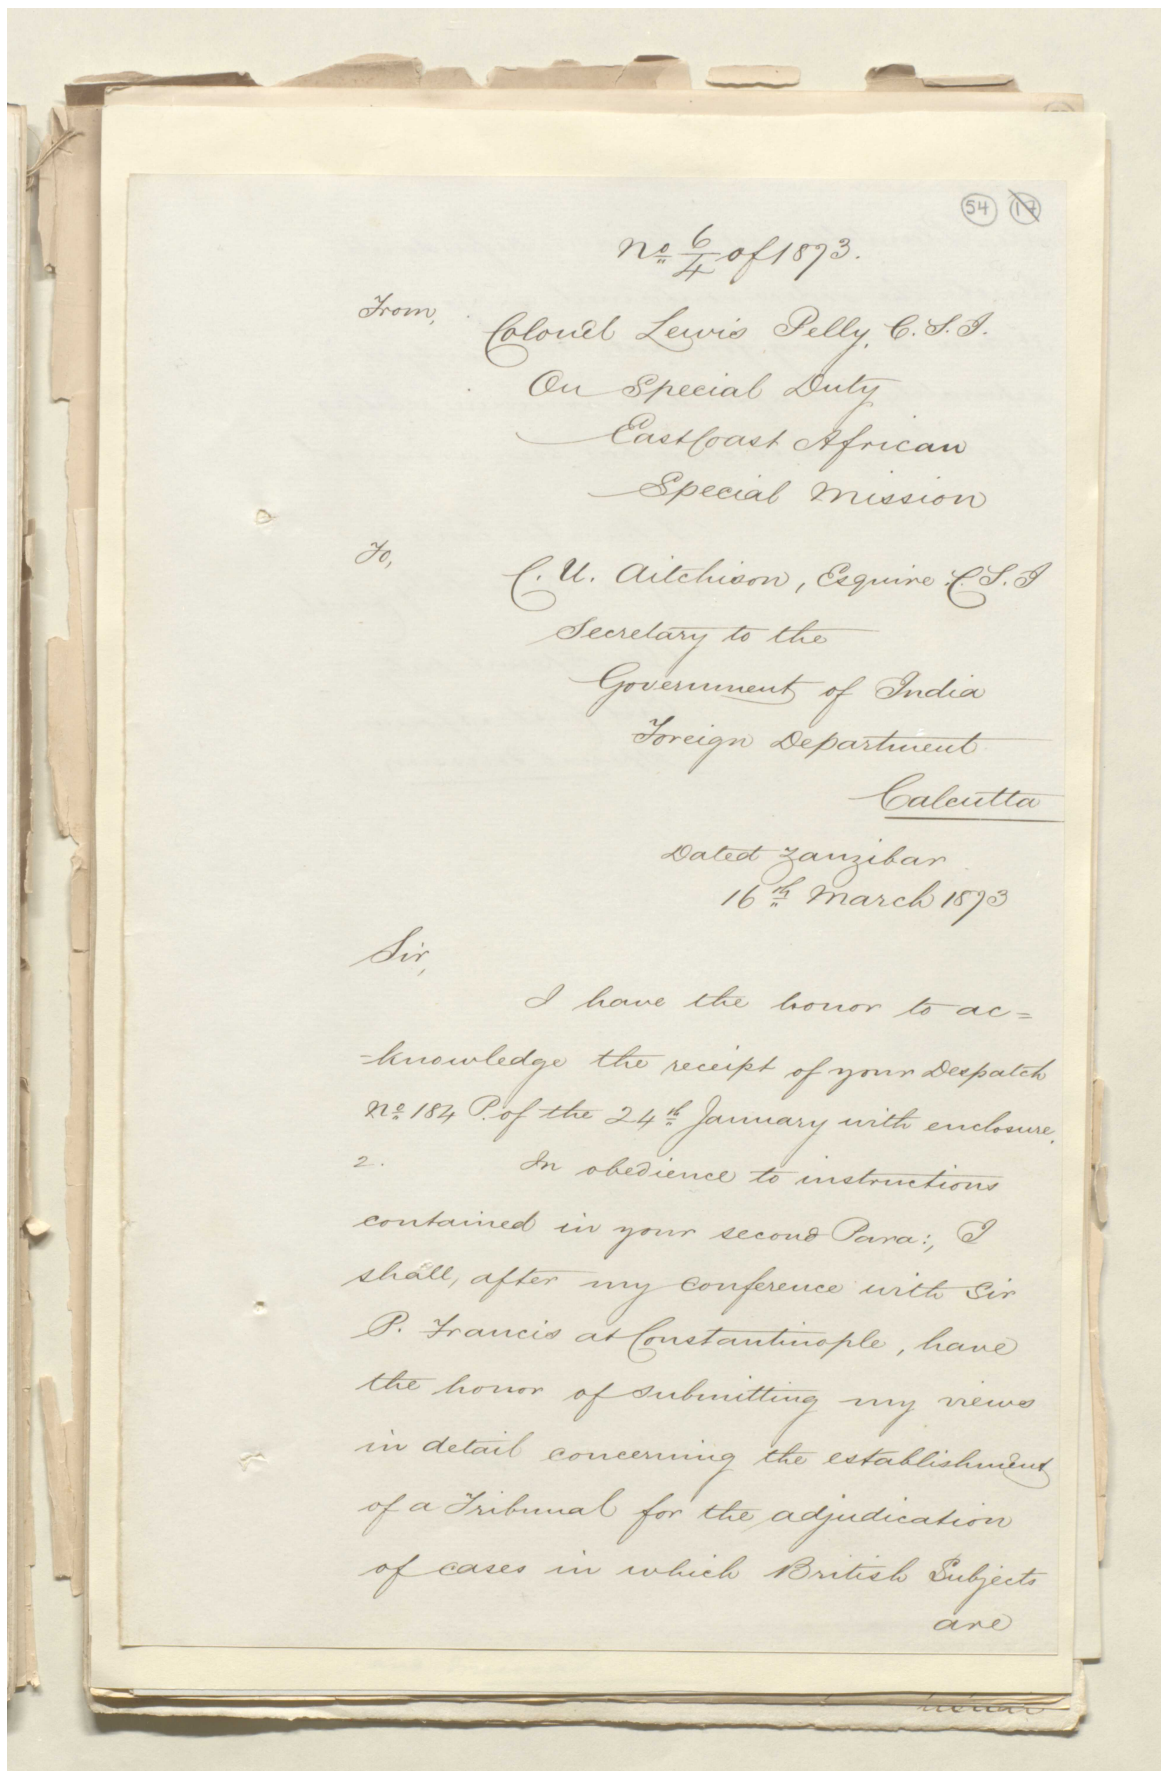 54 17
No 6/4 of 1873.
From,
Colonel Lewis Pelly, C.S.I.
On Special Duty
East Coast African
Special Mission
To,
C. U. Aitchison, Esquire C.S.I
Secretary to the
Government of India
Foreign Department
Calcutta
Dated Zanzibar
16th March 1873
Sir,
I have the honor to ac=
=knowledge the receipt of your Despatch
No 184 P. of the 24th January with enclosure.
2. In obedience to instructions
contained in your second Para:, I
shall, after my conference with Sir
P. Francis at Constantinople, have
the honor of submitting my views
in detail concerning the establishment
of a Tribunal for the adjudication
of cases in which British Subjects
are